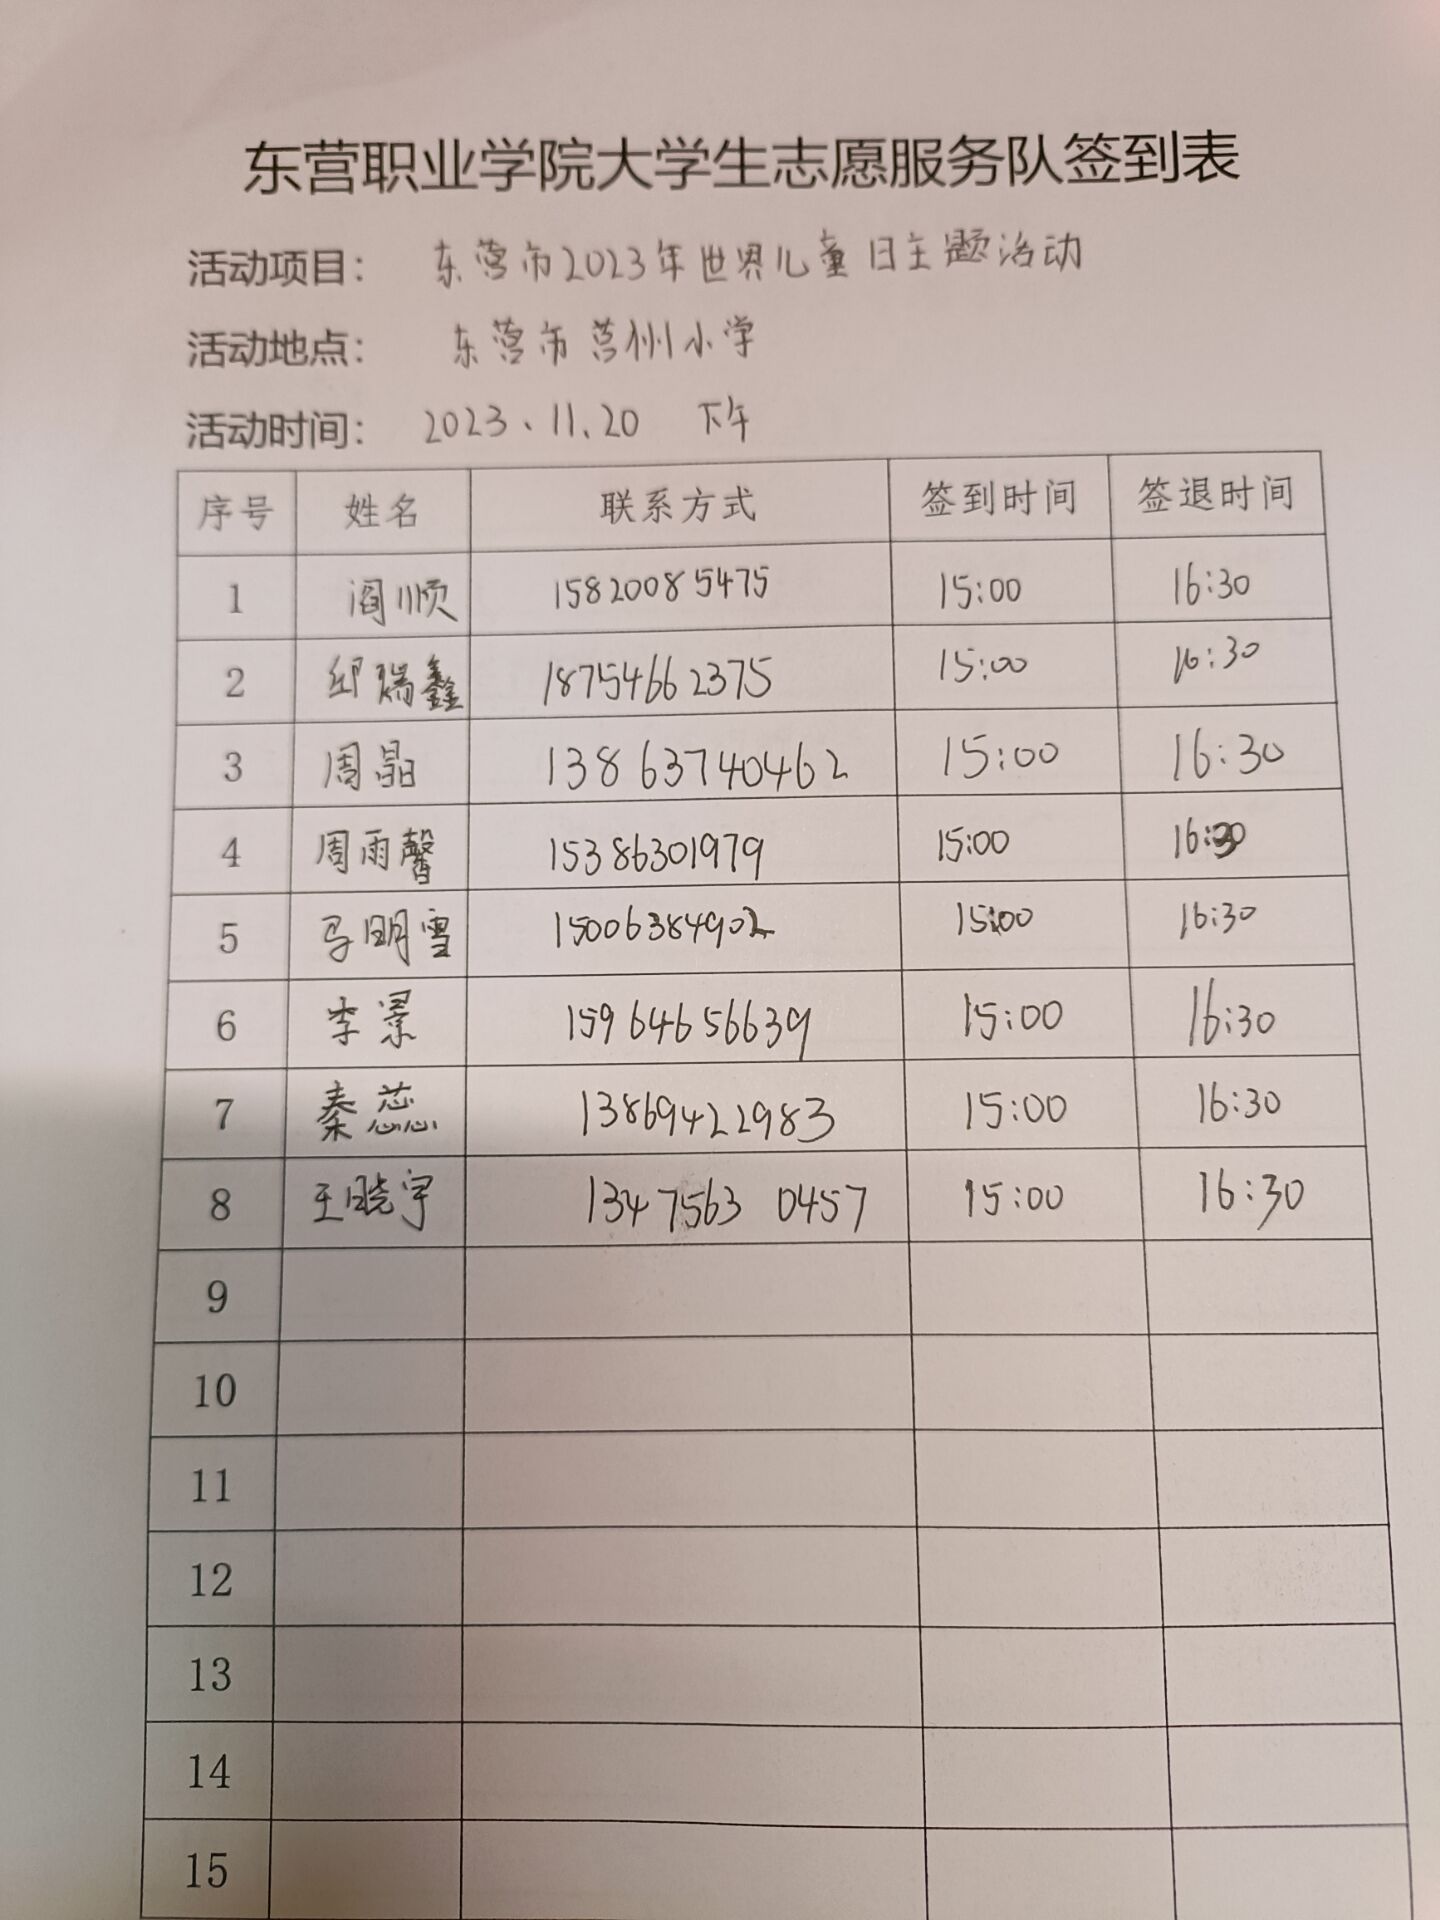 东营职业学院大学生志愿服务队签到表
活动项目： 东营市2023年世界儿童日主题活动
活动地点： 东营市莒州小学
活动时间： 2023、11、20 下午
序号 姓名 联系方式 签到时间 签退时间
1 阎顺 15820085475 15:00 16:30
2 邱瑞鑫 18754662375 15:00 16:30
3 周晶 13863740462 15:00 16:30
4 周雨馨 15386301979 15:00 16:30
5 马明雪 15006384902 15:00 16:30
6 李景 15964656639 15:00 16:30
7 秦蕊 13869422983 15:00 16:30
8 王晓宇 13475630457 15:00 16:30
9
10
11
12
13
14
15